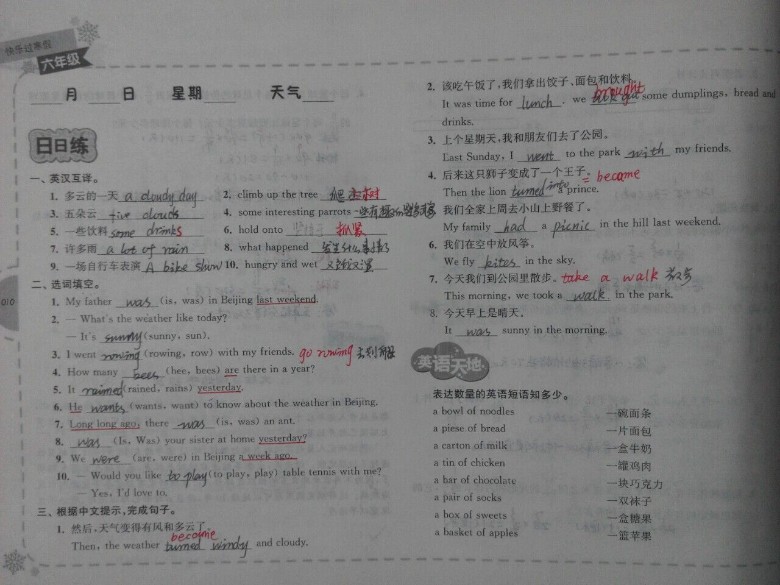 快乐过寒假
六年级
月 日 星期 天气
日日练
一、英汉互译。
1. 多云的一天 a cloudy day 2. climb up the tree 爬上树
3. 五朵云 five clouds 4. some interesting parrots 一些有趣的鹦鹉
5. 一些饮料 some drinks 6. hold onto 抓紧
7. 许多雨 a lot of rain 8. what happened 发生什么事
9. 一场自行车表演 A bike show 10. hungry and wet 又饿又湿
二、选词填空。
1. My father was (is, was) in Beijing last weekend.
2. — What's the weather like today?
— It's sunny (sunny, sun).
3. I went rowing (rowing, row) with my friends. go rowing 去划船
4. How many bees (bee, bees) are there in a year?
5. It rained (rained, rains) yesterday.
6. He wants (wants, want) to know about the weather in Beijing.
7. Long long ago, there was (is, was) an ant.
8. was (Is, Was) your sister at home yesterday?
9. We were (are, were) in Beijing a week ago.
10. — Would you like to play (to play, play) table tennis with me?
— Yes, I'd love to.
三、根据中文提示,完成句子。
1. 然后,天气变得有风和多云了。
become
Then, the weather turned windy and cloudy.
2. 该吃午饭了,我们拿出饺子、面包和饮料。
brought
It was time for lunch. we out some dumplings, bread and
drinks.
3. 上个星期天,我和朋友们去了公园。
Last Sunday, I went to the park with my friends.
4. 后来这只狮子变成了一个王子。= become
Then the lion turned into prince.
5. 我们全家上周去小山上野餐了。
My family had a picnic in the hill last weekend.
6. 我们在空中放风筝。
We fly kites in the sky.
7. 今天我们到公园里散步。 take a walk 散步
This morning, we took a walk in the park.
8. 今天早上是晴天。
It was sunny in the morning.
英语天地
表达数量的英语短语知多少。
a bowl of noodles 一碗面条
a piese of bread 一片面包
a carton of milk 一盒牛奶
a tin of chicken 一罐鸡肉
a bar of chocolate 一块巧克力
a pair of socks 一双袜子
a box of sweets 一盒糖果
a basket of apples 一篮苹果
010